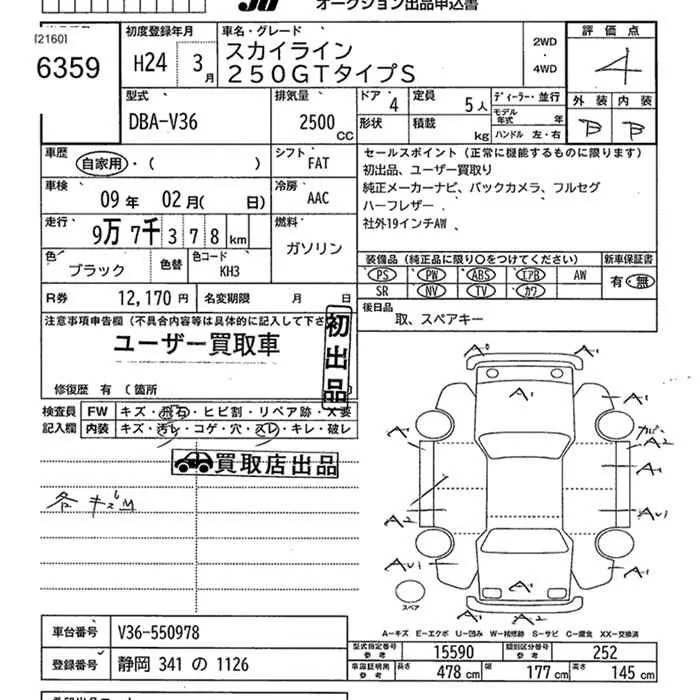 JU オークション出品申込書
[2160]
6359
初度登録年月
H24 3月
車名・グレード
スカイライン
250GTタイプS
2WD
・
4WD
評価点
4
外装 内装
B B
型式
DBA-V36
排気量
2500 CC
ドア 4
定員 5人
ディーラー・並行
形状
積載 kg
モデル年式 年
ハンドル 左・右
車歴
自家用・( )
シフト
FAT
車検
09年 02月( 日)
冷房
AAC
走行
9万 7千 378 km
燃料
ガソリン
色
ブラック
色替
色コード
KH3
セールスポイント (正常に機能するものに限ります)
初出品、ユーザー買取り
純正メーカーナビ、バックカメラ、フルセグ
ハーフレザー
社外19インチAW
装備品 (純正品に限り○をつけてください)
新車保証書
PS PW ABS エアB AW
SR NV TV カワ
有・無
R券 12,170円
名変期限 月 日
後日品
取、スペアキー
注意事項申告欄 (不具合内容等は具体的に記入して下さ
ユーザー買取車
初出品
修復歴 有 (箇所
検査員
記入欄
FW キズ・飛石・ヒビ割・リペア跡・X要
内装 キズ・汚レ・コゲ・穴・スレ・キレ・破レ
買取店出品
各キズM
A° A'
A' A' A'
ガバ A2
A'
A2 AU1
AU1 A' A'
A2 A'
スペア
A-キズ E-エクボ U-凹み W-補修跡 S-サビ C-腐食 XX-交換済
車台番号 V36-550978
登録番号 静岡 341 の 1126
型式指定番号 参考 15590
類別区分番号 参考 252
車庫証明用 参考 長さ 478 cm 幅 177 cm 高さ 145 cm